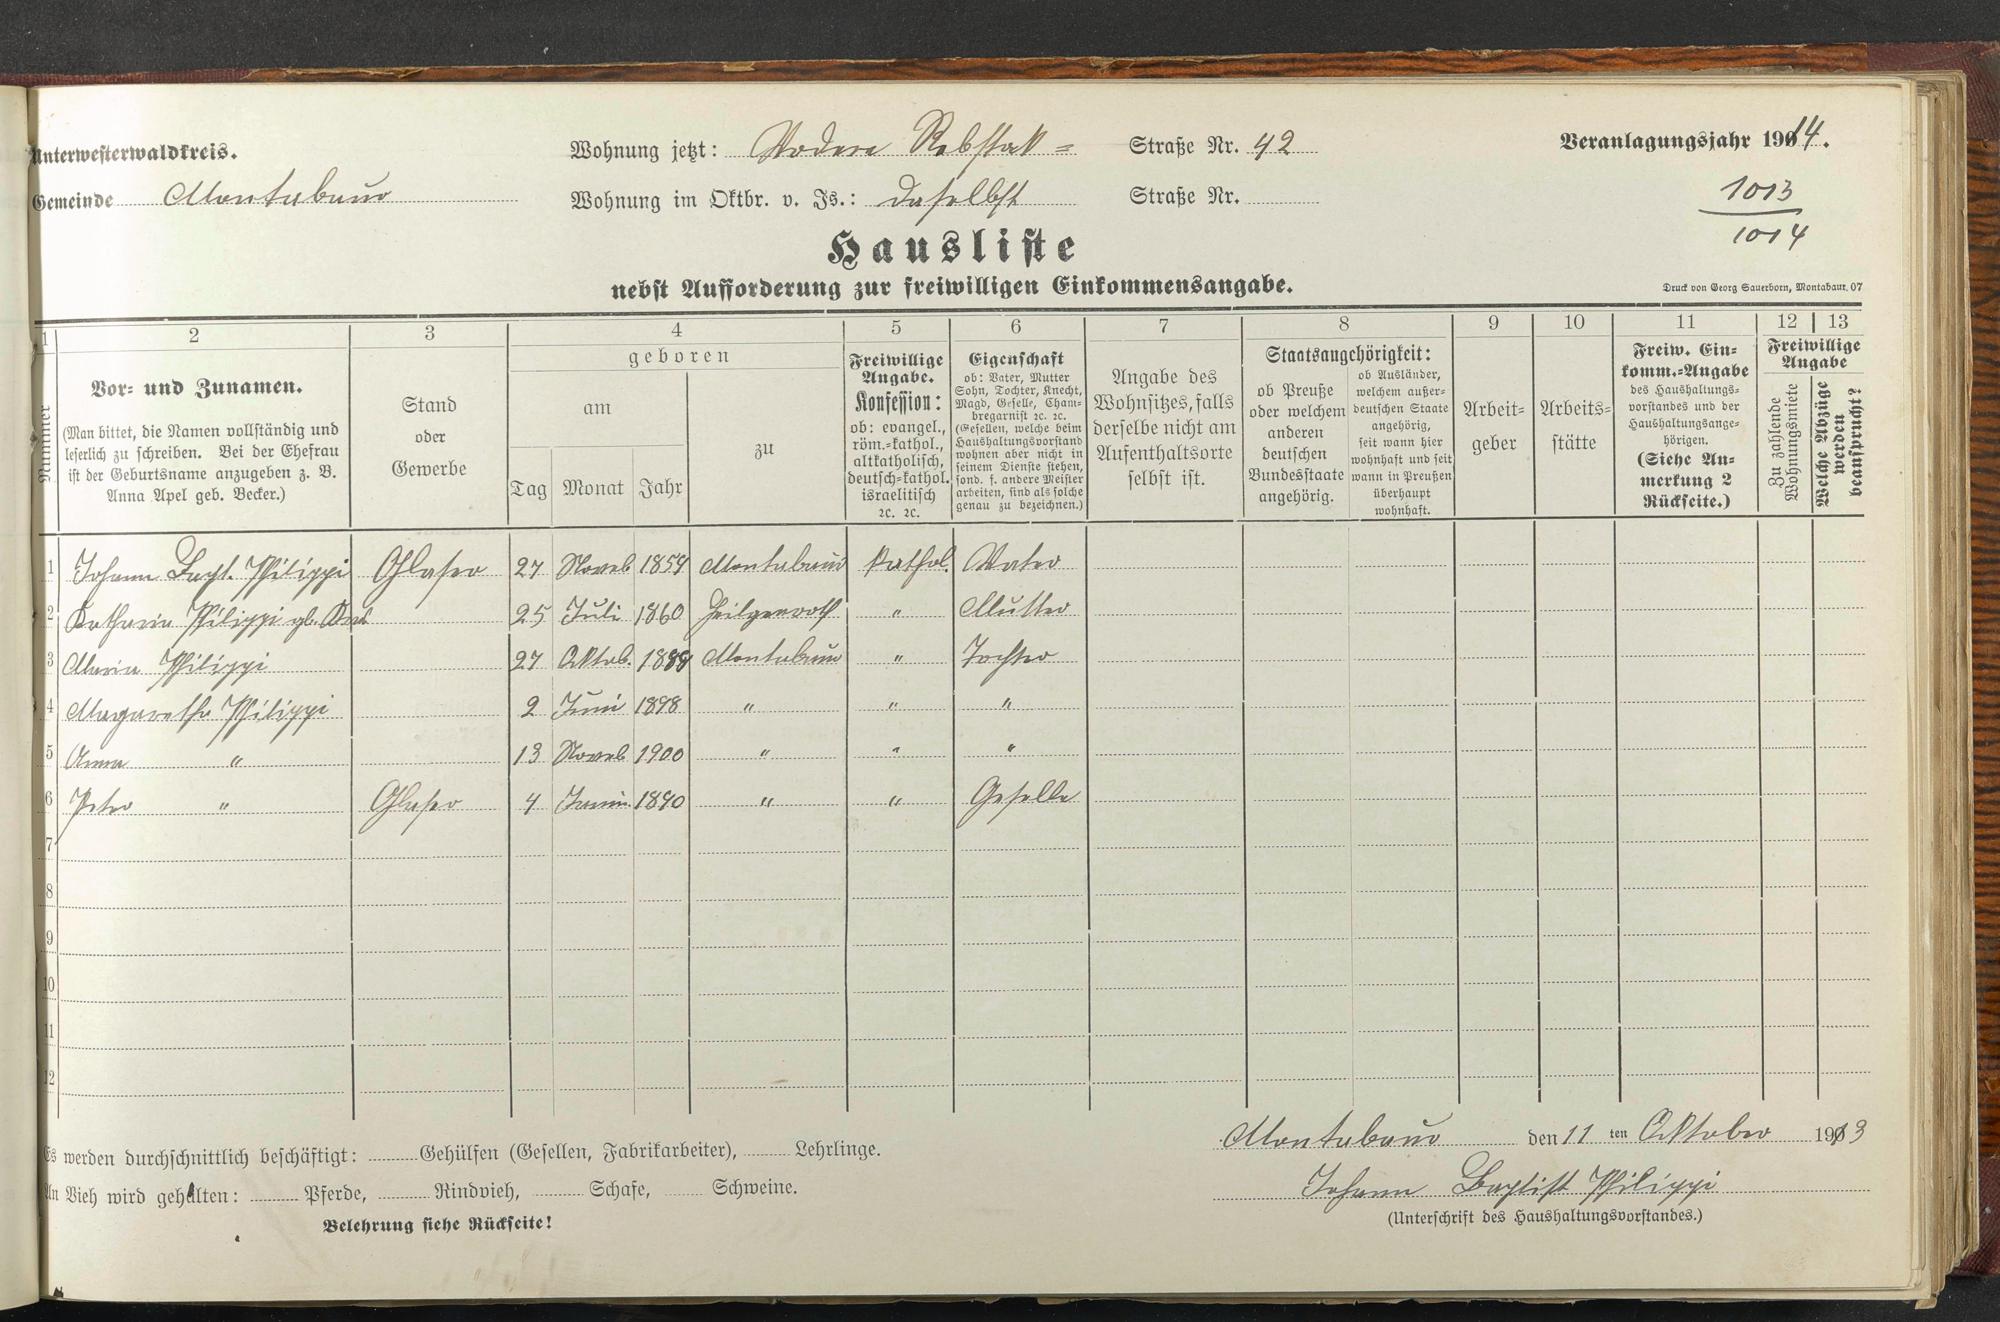 Unterwesterwaldkreis.
Wohnung jetzt: Vodere Rebstock= Straße Nr. 42
Veranlagungsjahr 1914.
Gemeinde Montabaur
Wohnung im Oktbr. v. Js.: daselbst Straße Nr.
1013
1014
Hausliste
nebst Aufforderung zur freiwilligen Einkommensangabe.
Druck von Georg Sauerborn, Montabaur. 07
1 2 3 4 5 6 7 8 9 10 11 12 13
Nummer
Vor- und Zunamen.
(Man bittet, die Namen vollständig und
leserlich zu schreiben. Bei der Ehefrau
ist der Geburtsname anzugeben z. B.
Anna Apel geb. Becker.)
Stand
oder
Gewerbe
geboren
am
Tag Monat Jahr
zu
Freiwillige
Angabe.
Konfession:
ob: evangel.,
röm.-kathol.,
altkatholisch,
deutsch-kathol.
israelitisch
ꝛc. ꝛc.
Eigenschaft
ob: Vater, Mutter
Sohn, Tochter, Knecht,
Magd, Geselle, Cham-
bregarnist ꝛc. ꝛc.
(Gesellen, welche beim
Haushaltungsvorstand
wohnen aber nicht in
seinem Dienste stehen,
sond. f. andere Meister
arbeiten, sind als solche
genau zu bezeichnen.)
Angabe des
Wohnsitzes, falls
derselbe nicht am
Aufenthaltsorte
selbst ist.
Staatsangehörigkeit:
ob Preuße
oder welchem
anderen
deutschen
Bundesstaate
angehörig.
ob Ausländer,
welchem außer-
deutschen Staate
angehörig,
seit wann hier
wohnhaft und seit
wann in Preußen
überhaupt
wohnhaft.
Arbeit-
geber
Arbeits-
stätte
Freiw. Ein-
komm.-Angabe
des Haushaltungs-
vorstandes und der
Haushaltungsange-
hörigen.
(Siehe An-
merkung 2
Rückseite.)
Freiwillige
Angabe
Zu zahlende
Wohnungsmiete
Welche Abzüge
werden
beansprucht?
1 Johann Bapt. Philippi Glaser 27 Noveb 1859 Montabaur kathol. Vater
2 Katharia Philippi gb. 25 Juli 1860 Heilgenroth " Mutter
3 Maria Philippi 27 Oktob. Montabaur " Tochter
4 Magaretha Philippi 2 Juni 1898 " " "
5 Anna " 13 Noveb 1900 " " "
6 Peter " Glaser 4 1890 " " Geselle
7
8
9
10
11
12
Es werden durchschnittlich beschäftigt: Gehülfen (Gesellen, Fabrikarbeiter), Lehrlinge.
An Vieh wird gehalten: Pferde, Rindvieh, Schafe, Schweine.
Belehrung siehe Rückseite!
Montabaur den 11 ten Oktober 1913
Johann Baptist Philippi
(Unterschrift des Haushaltungsvorstandes.)